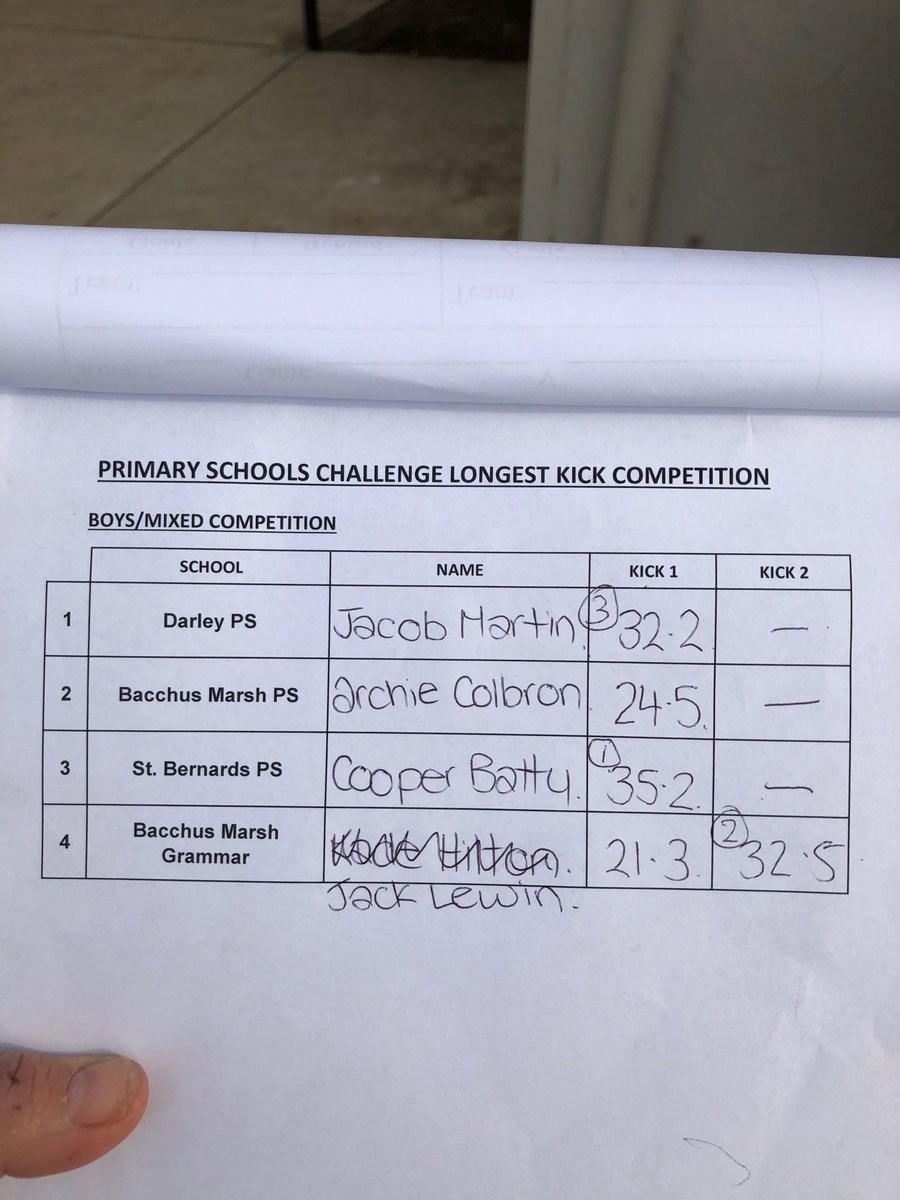 Goals Behinds Goals
Team: Team:
Round: Game
PRIMARY SCHOOLS CHALLENGE LONGEST KICK COMPETITION
BOYS/MIXED COMPETITION
SCHOOL NAME KICK 1 KICK 2
1 Darley PS Jacob Martin. 3 32.2. —
2 Bacchus Marsh PS Archie Colbron. 24.5. —
3 St. Bernards PS Cooper Batty. 1 35.2. —
4 Bacchus Marsh Grammar 21.3. 2 32.5
Jack Lewin.